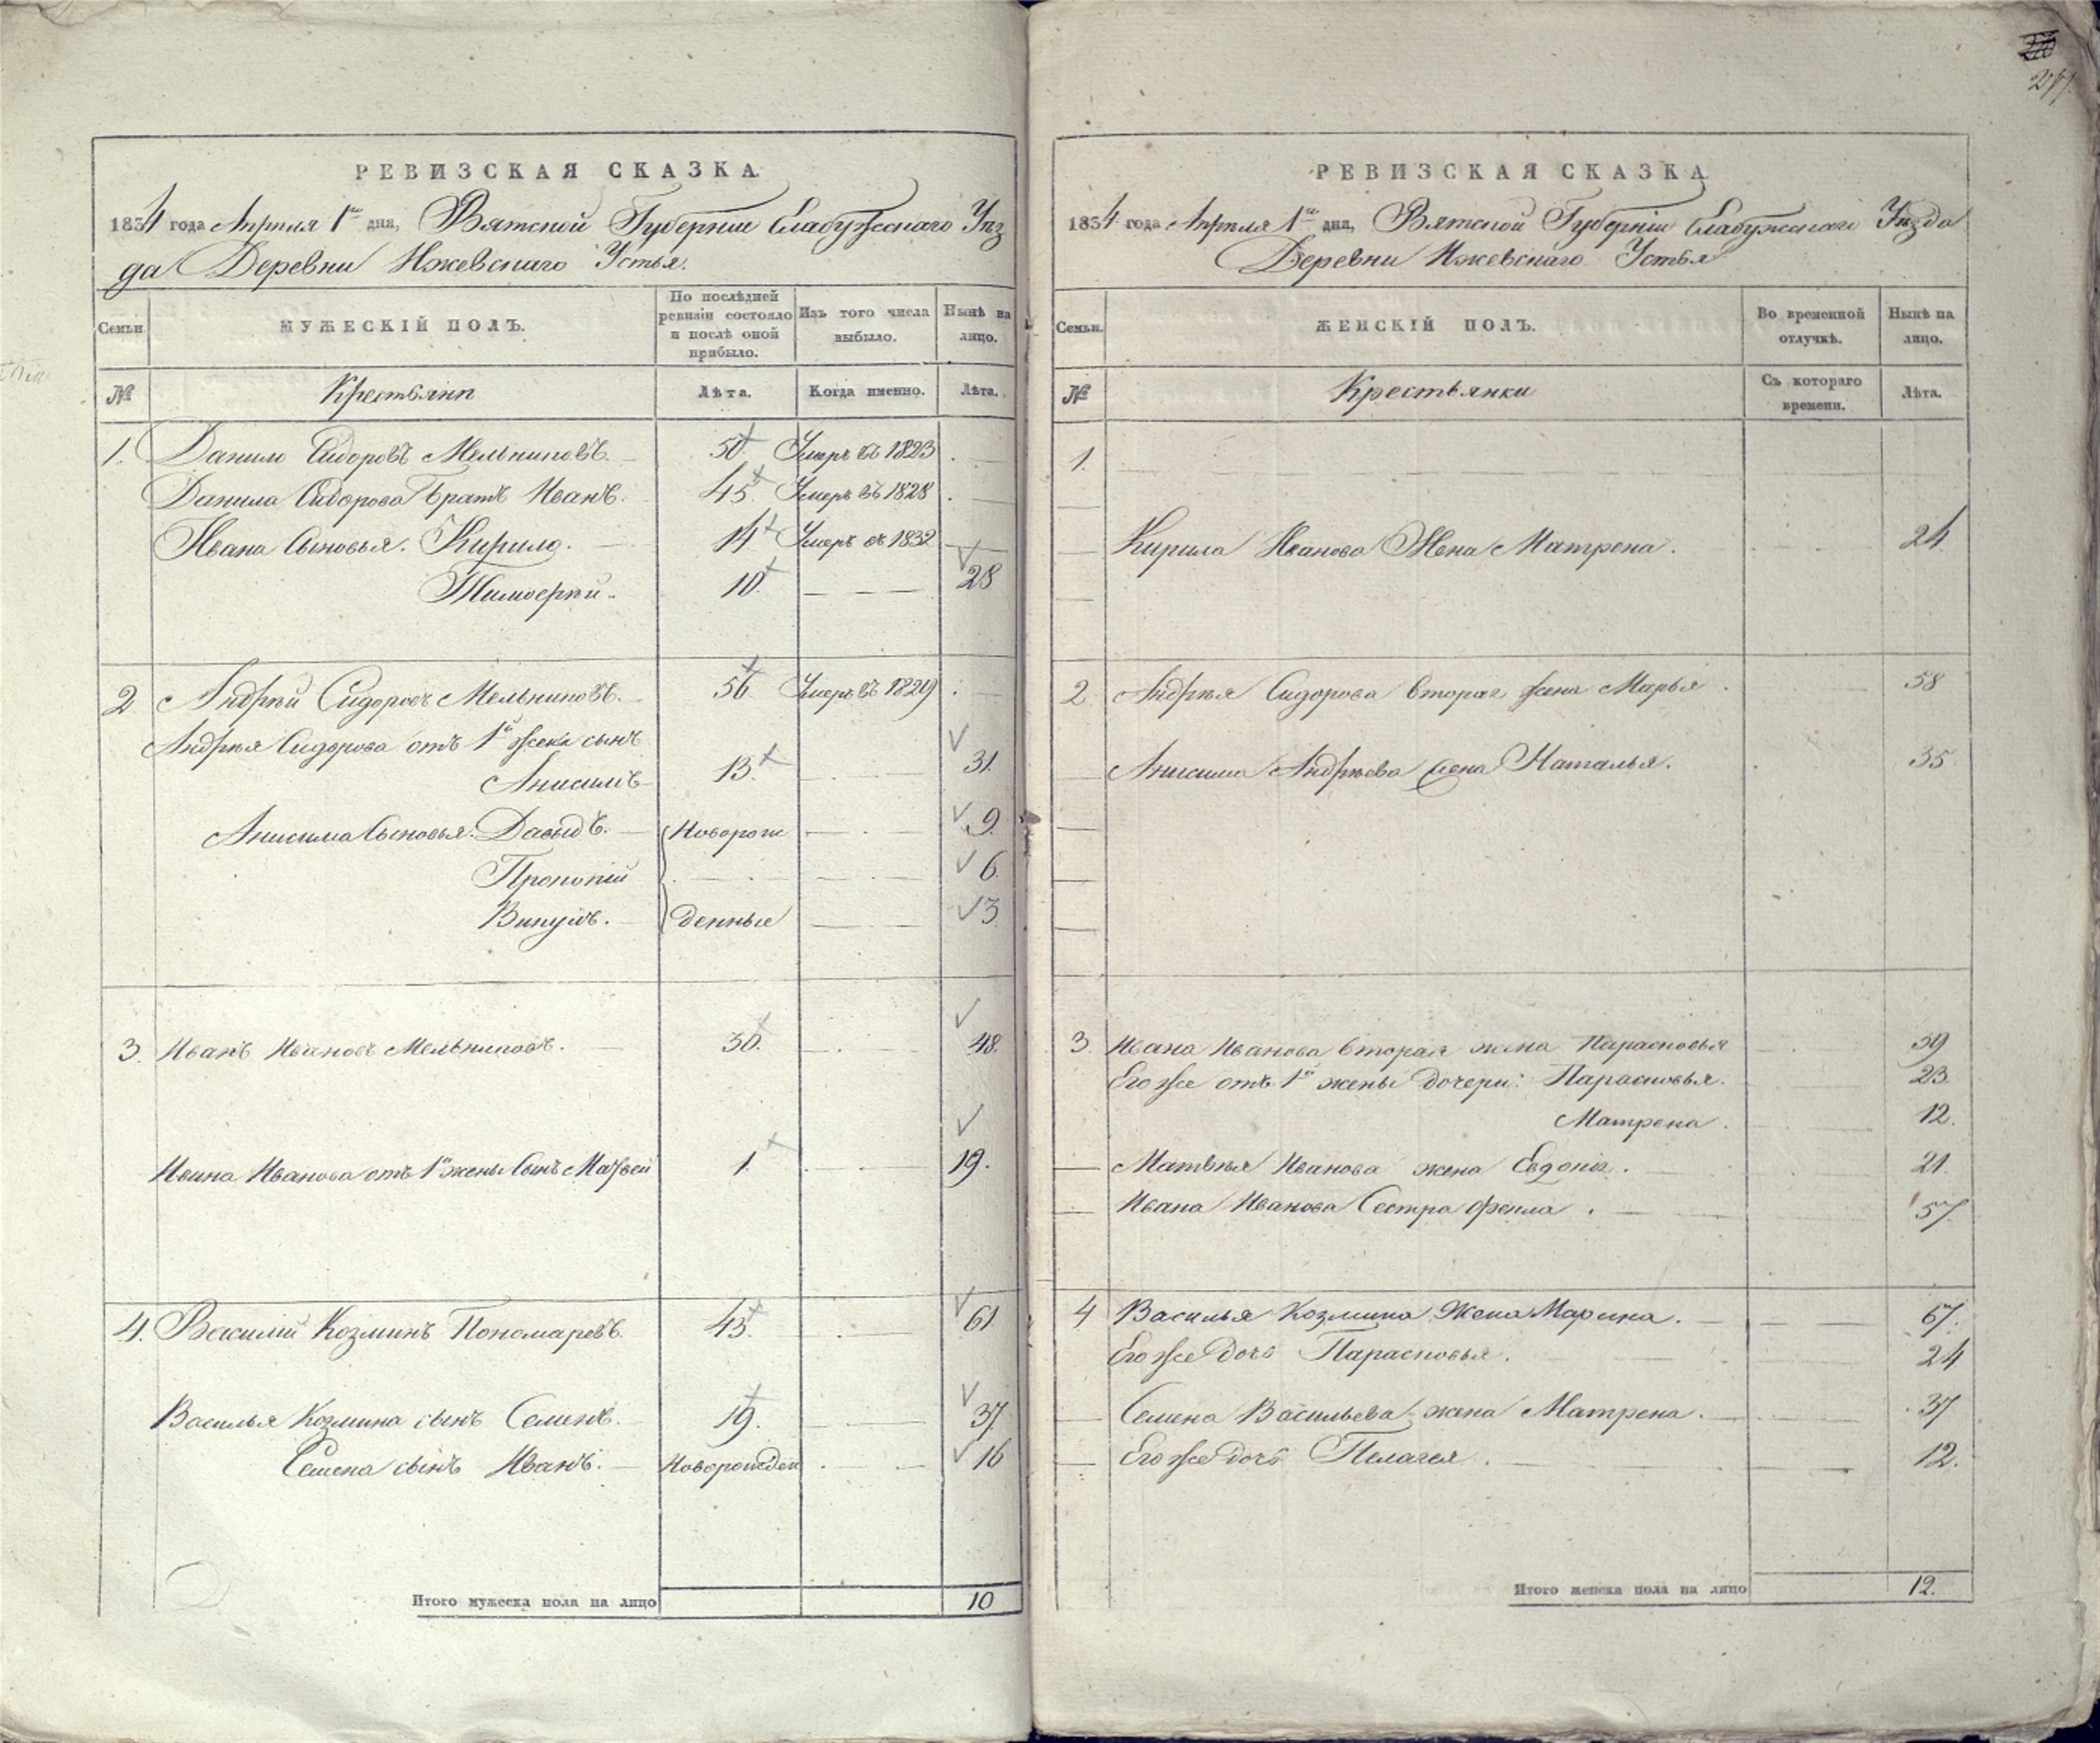 277
РЕВИЗСКАЯ СКАЗКА
1834 года Апреля 1го дня, Вятской Губернии Елабужскаго Уѣз
да Деревни Ижевскаго Устья.
Семьи.
МУЖЕСКІЙ ПОЛЪ.
По послѣдней ревизіи состояло и послѣ оной прибыло.
Изъ того числа выбыло.
Нынѣ на лицо.
№ Крестьяне Лѣта. Когда именно. Лѣта.
1. Данило Сидоровъ Мельниковъ. 50. Умеръ въ 1823
Данила Сидорова братъ Иванъ. 45. Умеръ въ 1828
Ивана Сыновья. Кирило. 14 Умеръ въ 1832
Тимоѳей. 10. 28
2 Андрѣй Сидоровъ Мельниковъ. 56. Умеръ въ 1829
Андрѣя Сидорова отъ 1й жены сынъ
Анисимъ 13. 31.
Анисима Сыновья: Давыдъ. Новорож 9.
Прокопій 6.
Викулъ. денные 3
3. Иванъ Ивановъ Мельниковъ. 30. 48.
Ивана Иванова отъ 1й жены Сынъ Матвей 1. 19.
4. Василий Козминъ Пономаревъ. 45. 61
Василья Козмина сынъ Семенъ. 19. 37.
Семена сынъ Иванъ. Новорожден 16
Итого мужеска пола на лицо 10
РЕВИЗСКАЯ СКАЗКА
1834 года Апреля 1го дня, Вятской Губерніи Елабужскаго Уѣзда
Деревни Ижевскаго Устья
Семьи.
ЖЕНСКІЙ ПОЛЪ.
Во временной отлучкѣ.
Нынѣ на лицо.
№ Крестьянки Съ котораго времени. Лѣта.
1.
Кирила Иванова Жена Матрена. 24
2. Андрѣя Сидорова вторая жена Марья. 58
Анисима Андрѣева жена Наталья. 35
3. Ивана Иванова вторая жена Парасковья 39
Его же отъ 1й жены дочери: Парасковья. 23.
Матрена. 12.
Матвѣя Иванова жена Евдокія. 21.
Ивана Иванова Сестра Фекла. 57
4 Василья Козмина Жена Марина. 67.
Его же дочь Парасковья. 24
Семена Васильева жена Матрена. 37
Его же дочь Пелагея. 12.
Итого женска пола на лицо 12.